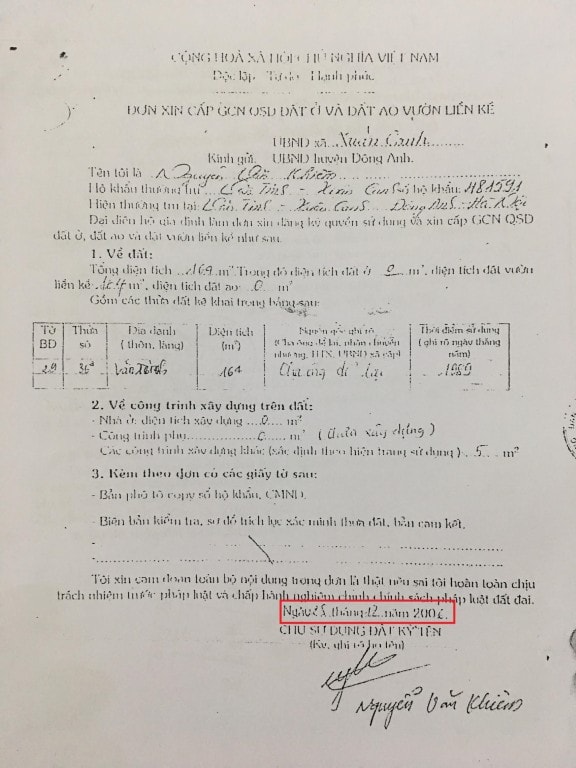 CỘNG HOÀ XÃ HỘI CHỦ NGHĨA VIỆT NAM
Độc lập - Tự do - Hạnh phúc
ĐƠN XIN CẤP GCN QSD ĐẤT Ở VÀ ĐẤT AO VƯỜN LIỀN KỀ
UBND xã Xuân Canh
Kính gửi: UBND huyện Đông Anh.
Tên tôi là Nguyễn Văn Khiêm
Hộ khẩu thường trú Xuân Canh Số hộ khẩu: H81591
Hiện thường trú tại: Xuân Canh Đông Anh - Hà Nội
Đại diện hộ gia đình làm đơn xin đăng ký quyền sử dụng và xin cấp GCN QSD
đất ở, đất ao và đất vườn liền kề như sau.
1. Về đất:
Tổng diện tích m². Trong đó diện tích đất ở 0 m², diện tích đất vườn
liền kề m², diện tích đất ao: 0 m²
Gồm các thửa đất kê khai trong bảng sau:
Tờ BĐ Thửa số Địa danh (thôn, làng) Diện tích (m²) Nguồn gốc ghi rõ (Cha ông để lại, nhận chuyển nhượng, HTX, UBND xã cấp) Thời điểm sử dụng (ghi rõ ngày tháng năm)
29 Cha ông để lại
2. Về công trình xây dựng trên đất:
- Nhà ở: diện tích xây dựng 0 m²
- Công trình phụ 0 m² (chưa xây dựng)
Các công trình xây dựng khác (xác định theo hiện trạng sử dụng) 5 m²
3. Kèm theo đơn có các giấy tờ sau:
- Bản phô tô copy sổ hộ khẩu, CMND.
- Biên bản kiểm tra, sơ đồ trích lục xác minh thửa đất, bản cam kết.
Tôi xin cam đoan toàn bộ nội dung trong đơn là thật nếu sai tôi hoàn toàn chịu
trách nhiệm trước pháp luật và chấp hành nghiêm chỉnh chính sách pháp luật đất đai.
Ngày tháng 12 năm
CHỦ SỬ DỤNG ĐẤT KÝ TÊN
(Ký, ghi rõ họ tên)
Nguyễn Văn Khiêm